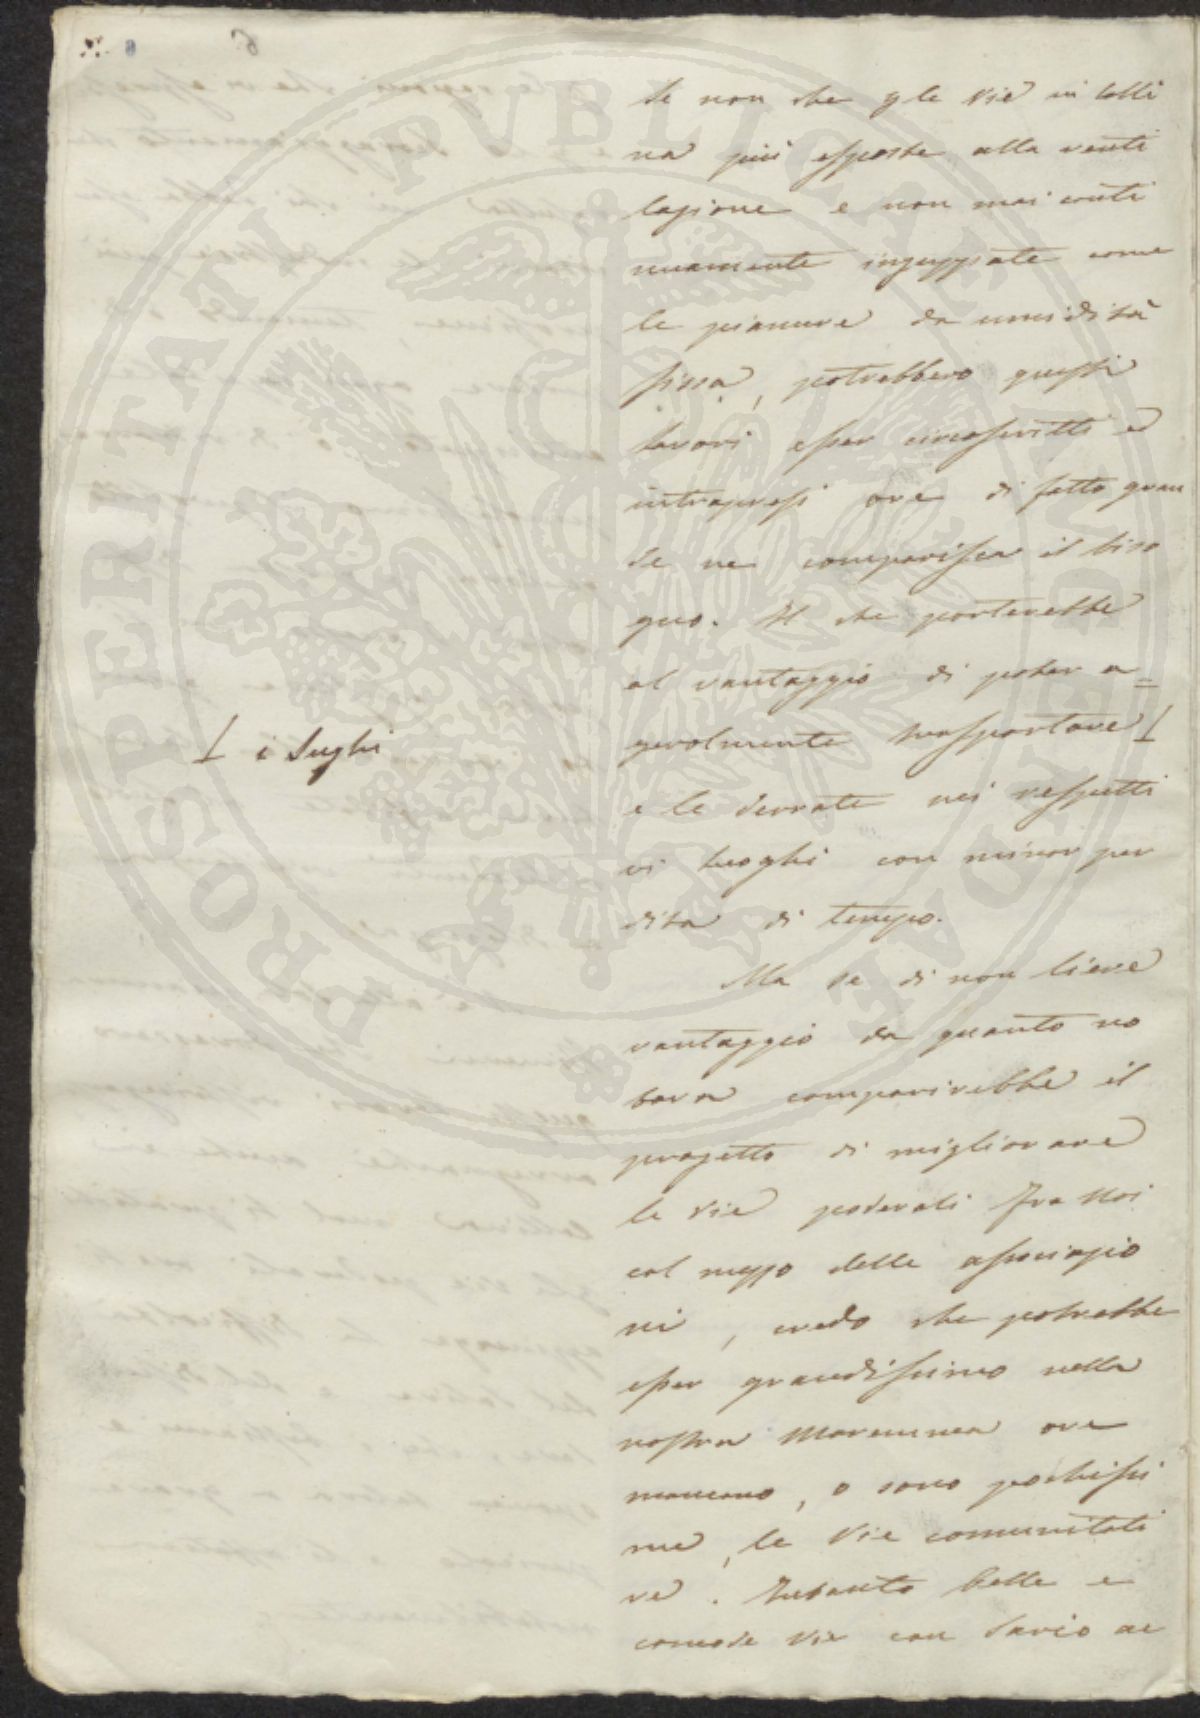 Se non che p le vie in Colli
na più esposte alla venti
lazione e non mai conti
nuamente inzuppate come
le pianure da umidità
fissa, potrebbero questi
lavori esser circoscritti e
intrapresi ove di fatto gran
de ne comparisca il biso
gno. Il che porterebbe
al vantaggio di poter a=
gevolmente trasportare
i Sughi
e le derrate nei respetti
vi luoghi con minor per
dita di tempo.
Ma se di non lieve
vantaggio da quanto no
tava comparirebbe il
progetto di migliorare
le vie poderali fra Noi
col mezzo delle associazio
ni, credo che potrebbe
esser grandissimo nella
nostra Maremma ove
mancano, o sono pochissi
me, le Vie comunitati
ve. Intanto belle e
comode Vie con savio ac
PROSPERITATI PVBLICAE AVGENDAE
6